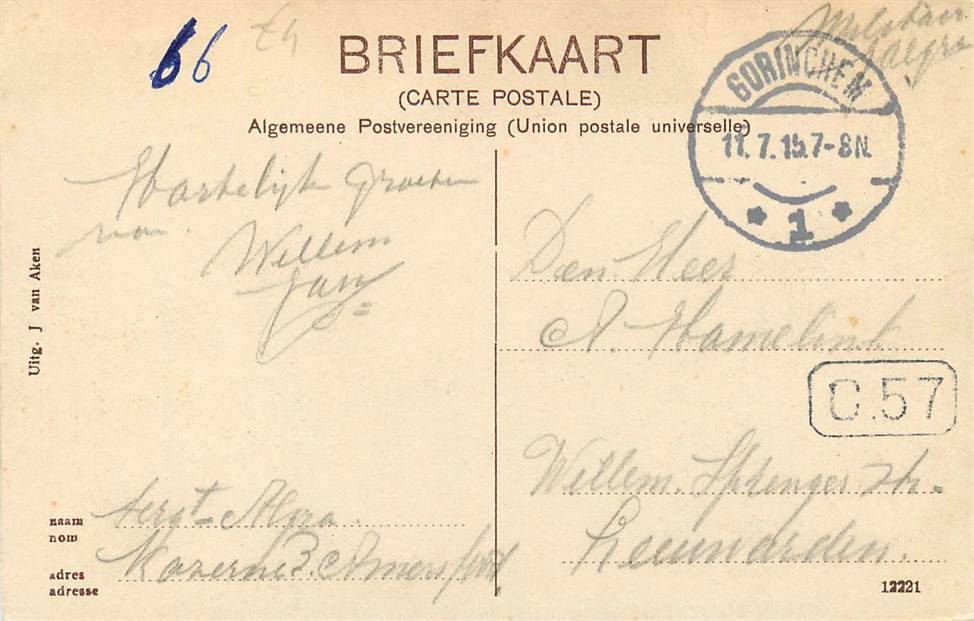 66
BRIEFKAART
(CARTE POSTALE)
Algemeene Postvereeniging (Union postale universelle)
GORINCHEM
11.7.15.7-8N.
* 1 *
Hartelijk groeten
van
Willem
Uitg. J van Aken
Den Heer
A. Hamelink
C.57
Willem Sprenger str.
Leeuwarden.
naam
nom
Sergt Algra
adres
adresse
Kazerne 3 Amersfoort
12221